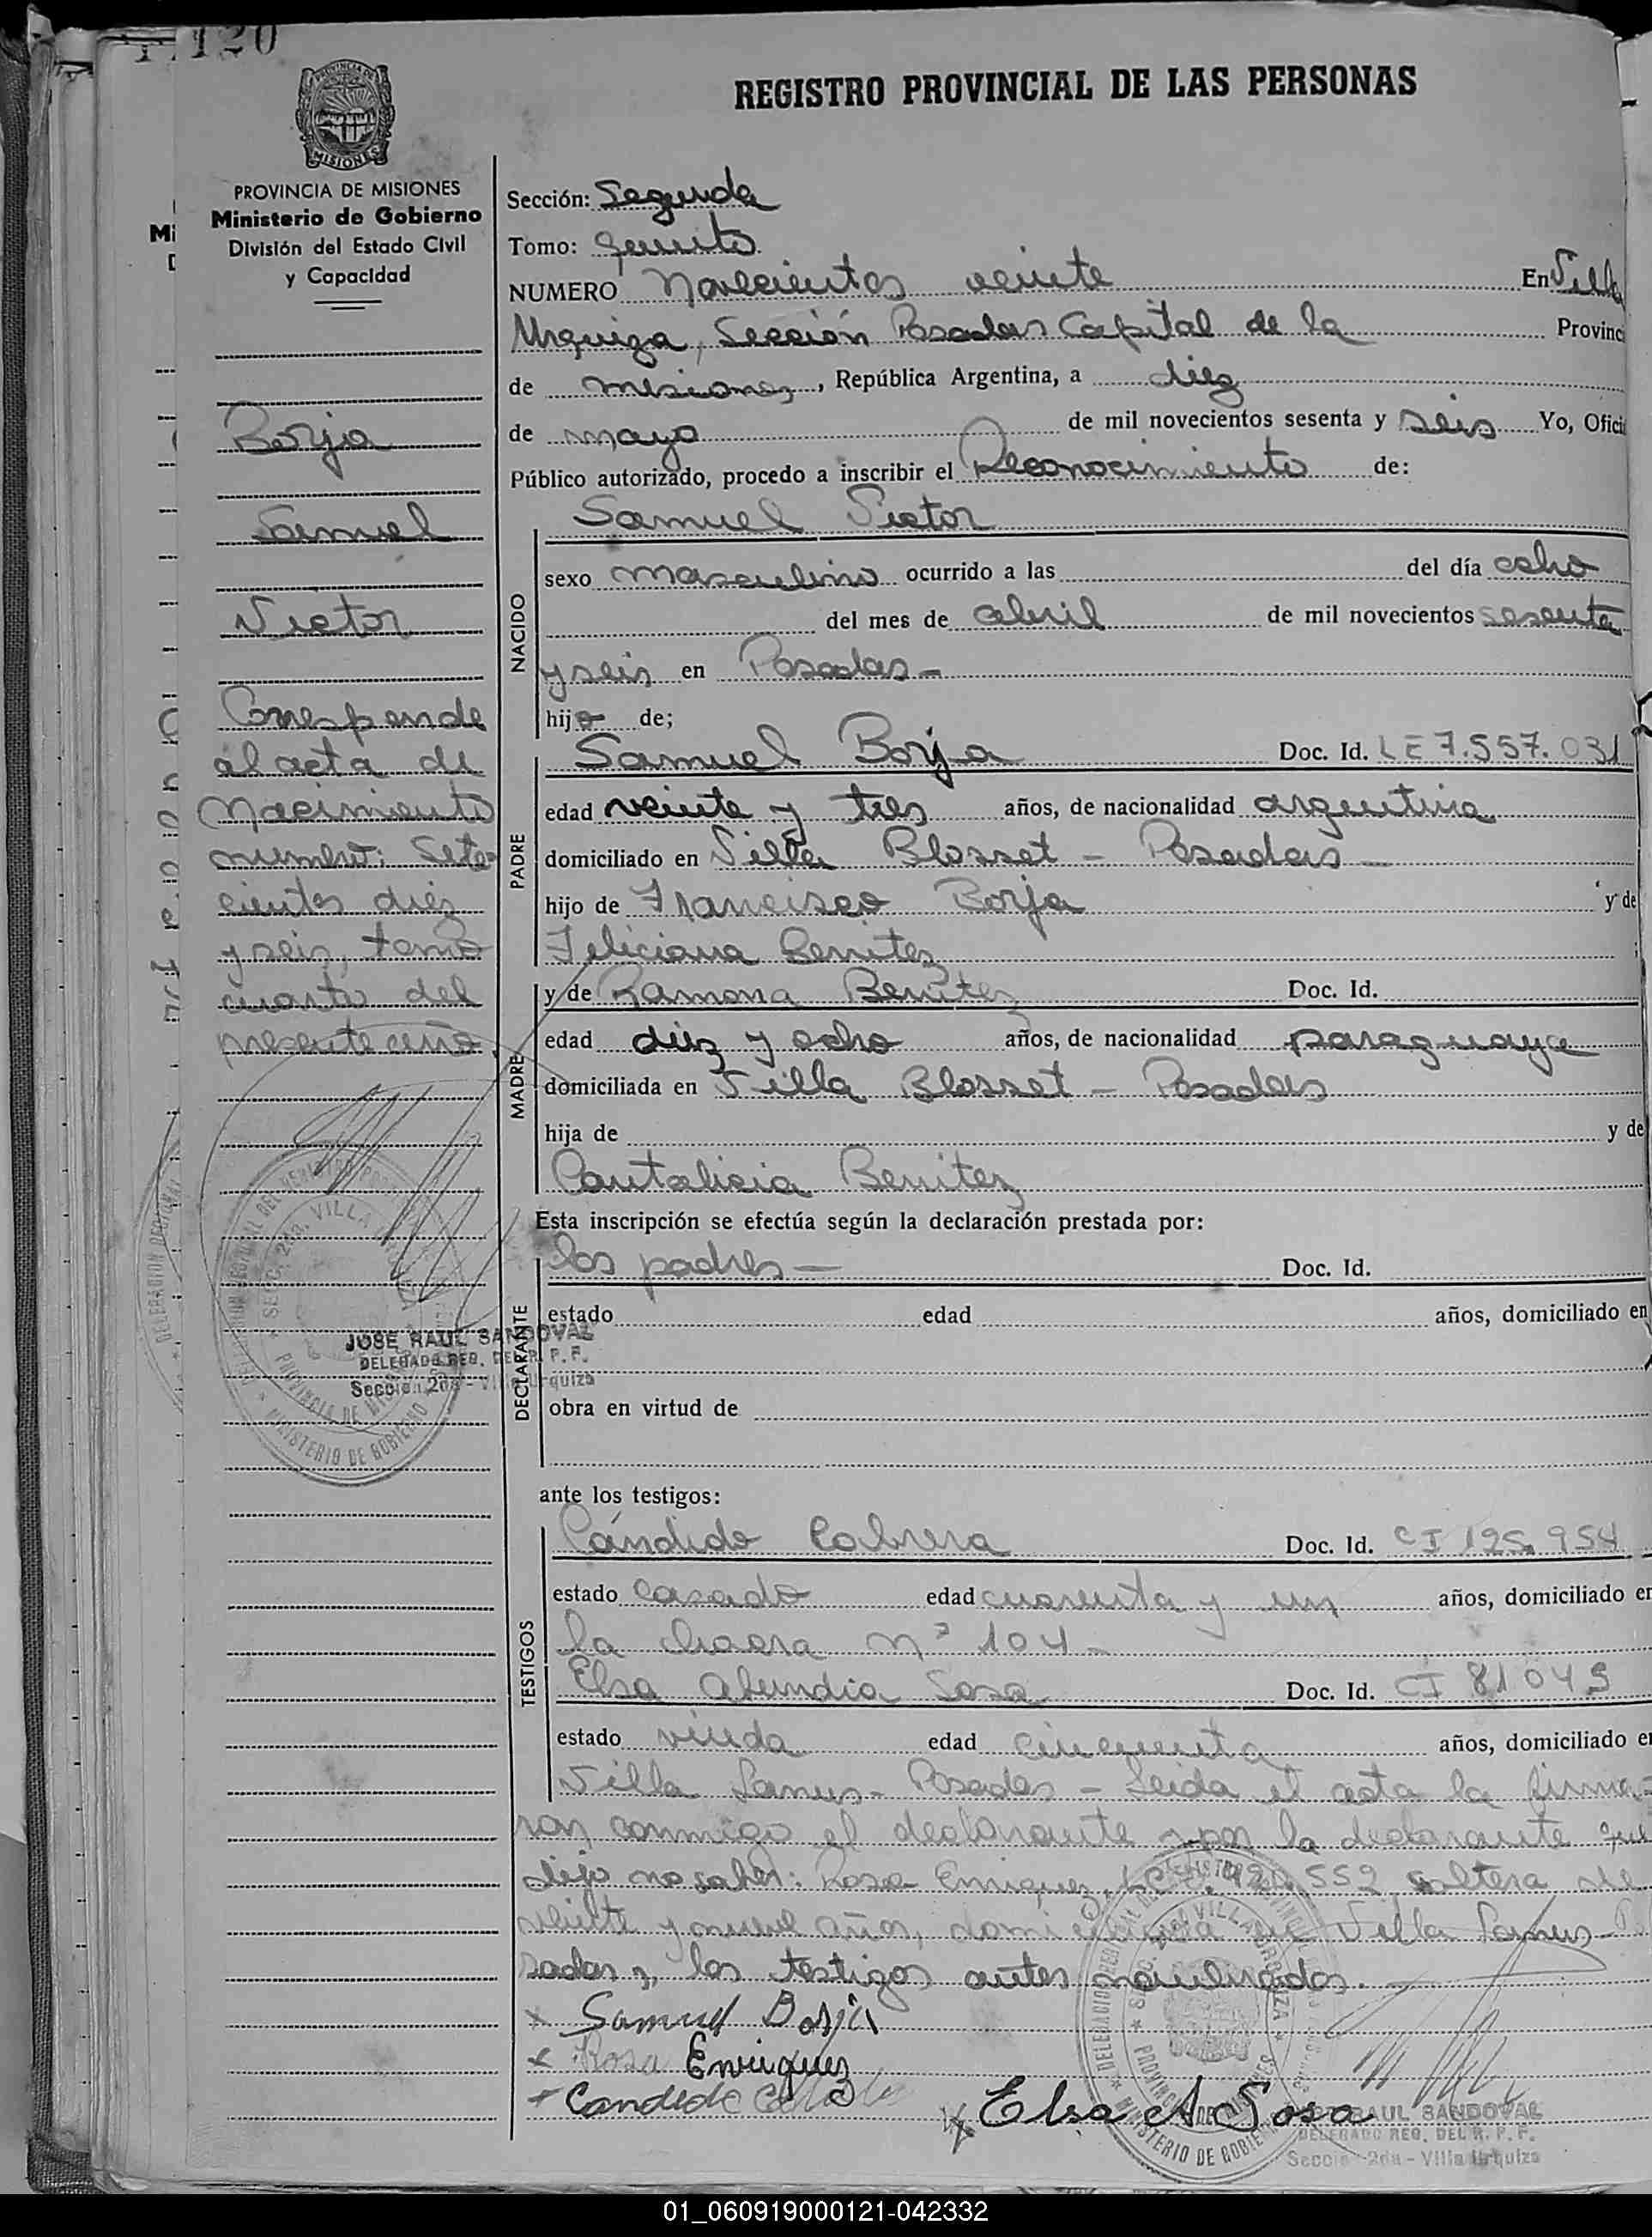 120
REGISTRO PROVINCIAL DE LAS PERSONAS
MISIONES
PROVINCIA DE MISIONES
Ministerio de Gobierno
División del Estado Civil
y Capacidad
Borja
Samuel
Victor
Corresponde
al acta de
Nacimiento
número: Sete
cientos diez
y seis, tomo
cuarto del
presente año.
JOSE RAUL SANDOVAL
DELEGADO REG. DEL R. P. P.
Sección 2da - Villa Urquiza
Sección: Segunda
Tomo: Quinto
NUMERO Novecientos veinte En Villa
Urquiza, Sección Posadas Capital de la Provinc
de misiones, República Argentina, a diez
de mayo de mil novecientos sesenta y seis Yo, Ofici
Público autorizado, procedo a inscribir el Reconocimiento de:
NACIDO
Samuel Victor
sexo masculino ocurrido a las del día ocho
del mes de abril de mil novecientos sesenta
y seis en Posadas -
hijo de;
PADRE
Samuel Borja Doc. Id. LE 7.557.031
edad veinte y tres años, de nacionalidad argentina
domiciliado en Villa Blosset - Posadas -
hijo de Francisco Borja y de
Feliciana Benitez
MADRE
y de Ramona Benitez Doc. Id.
edad diez y ocho años, de nacionalidad paraguaya
domiciliada en Villa Blosset - Posadas
hija de y de
Cantalicia Benitez
Esta inscripción se efectúa según la declaración prestada por:
DECLARANTE
los padres - Doc. Id.
estado edad años, domiciliado en
obra en virtud de
ante los testigos:
TESTIGOS
Cándido Cabrera Doc. Id. CI 125.954
estado casado edad cuarenta y un años, domiciliado en
la chacra Nº 104 -
Elsa Abundia Sosa Doc. Id. CI 81049
estado viuda edad cincuenta años, domiciliado en
Villa Lanus - Posadas - Leida el acta la firma-
ron conmigo el declarante y por la declarante que
dijo no saber: Rosa Enriquez, 552 soltera de
veinte y nueve años, domiciliada en Villa Lanus - Po
sadas y, los testigos antes nombrados.
x Samuel Borja
x Rosa Enriquez
+ Candido Cabrera
x Elsa A. Sosa
RAUL SANDOVAL
DELEGADO REG. DEL R. P. P.
Sección 2da - Villa Urquiza
01_060919000121-042332